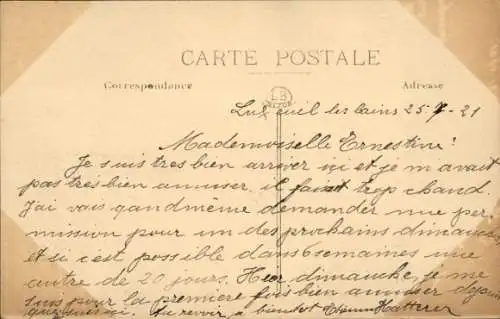 CARTE POSTALE
Correspondance
Adresse
LB
Luxeuil les bains 25-7-21
Mademoiselle Ernestine!
Je suis très bien arriver ici et je m avait
pas très bien amuser, il fait trop chaud.
J'ai vais gand même demander une per,
mission pour un des prochains dimanc
et si c'est possible dans 6 semaines une
autre de 20 jours. Hier dimanche, je me
suis pour la première fois bien amuser depuis
que suis ici. Au revoir, à bientôt Hatterer